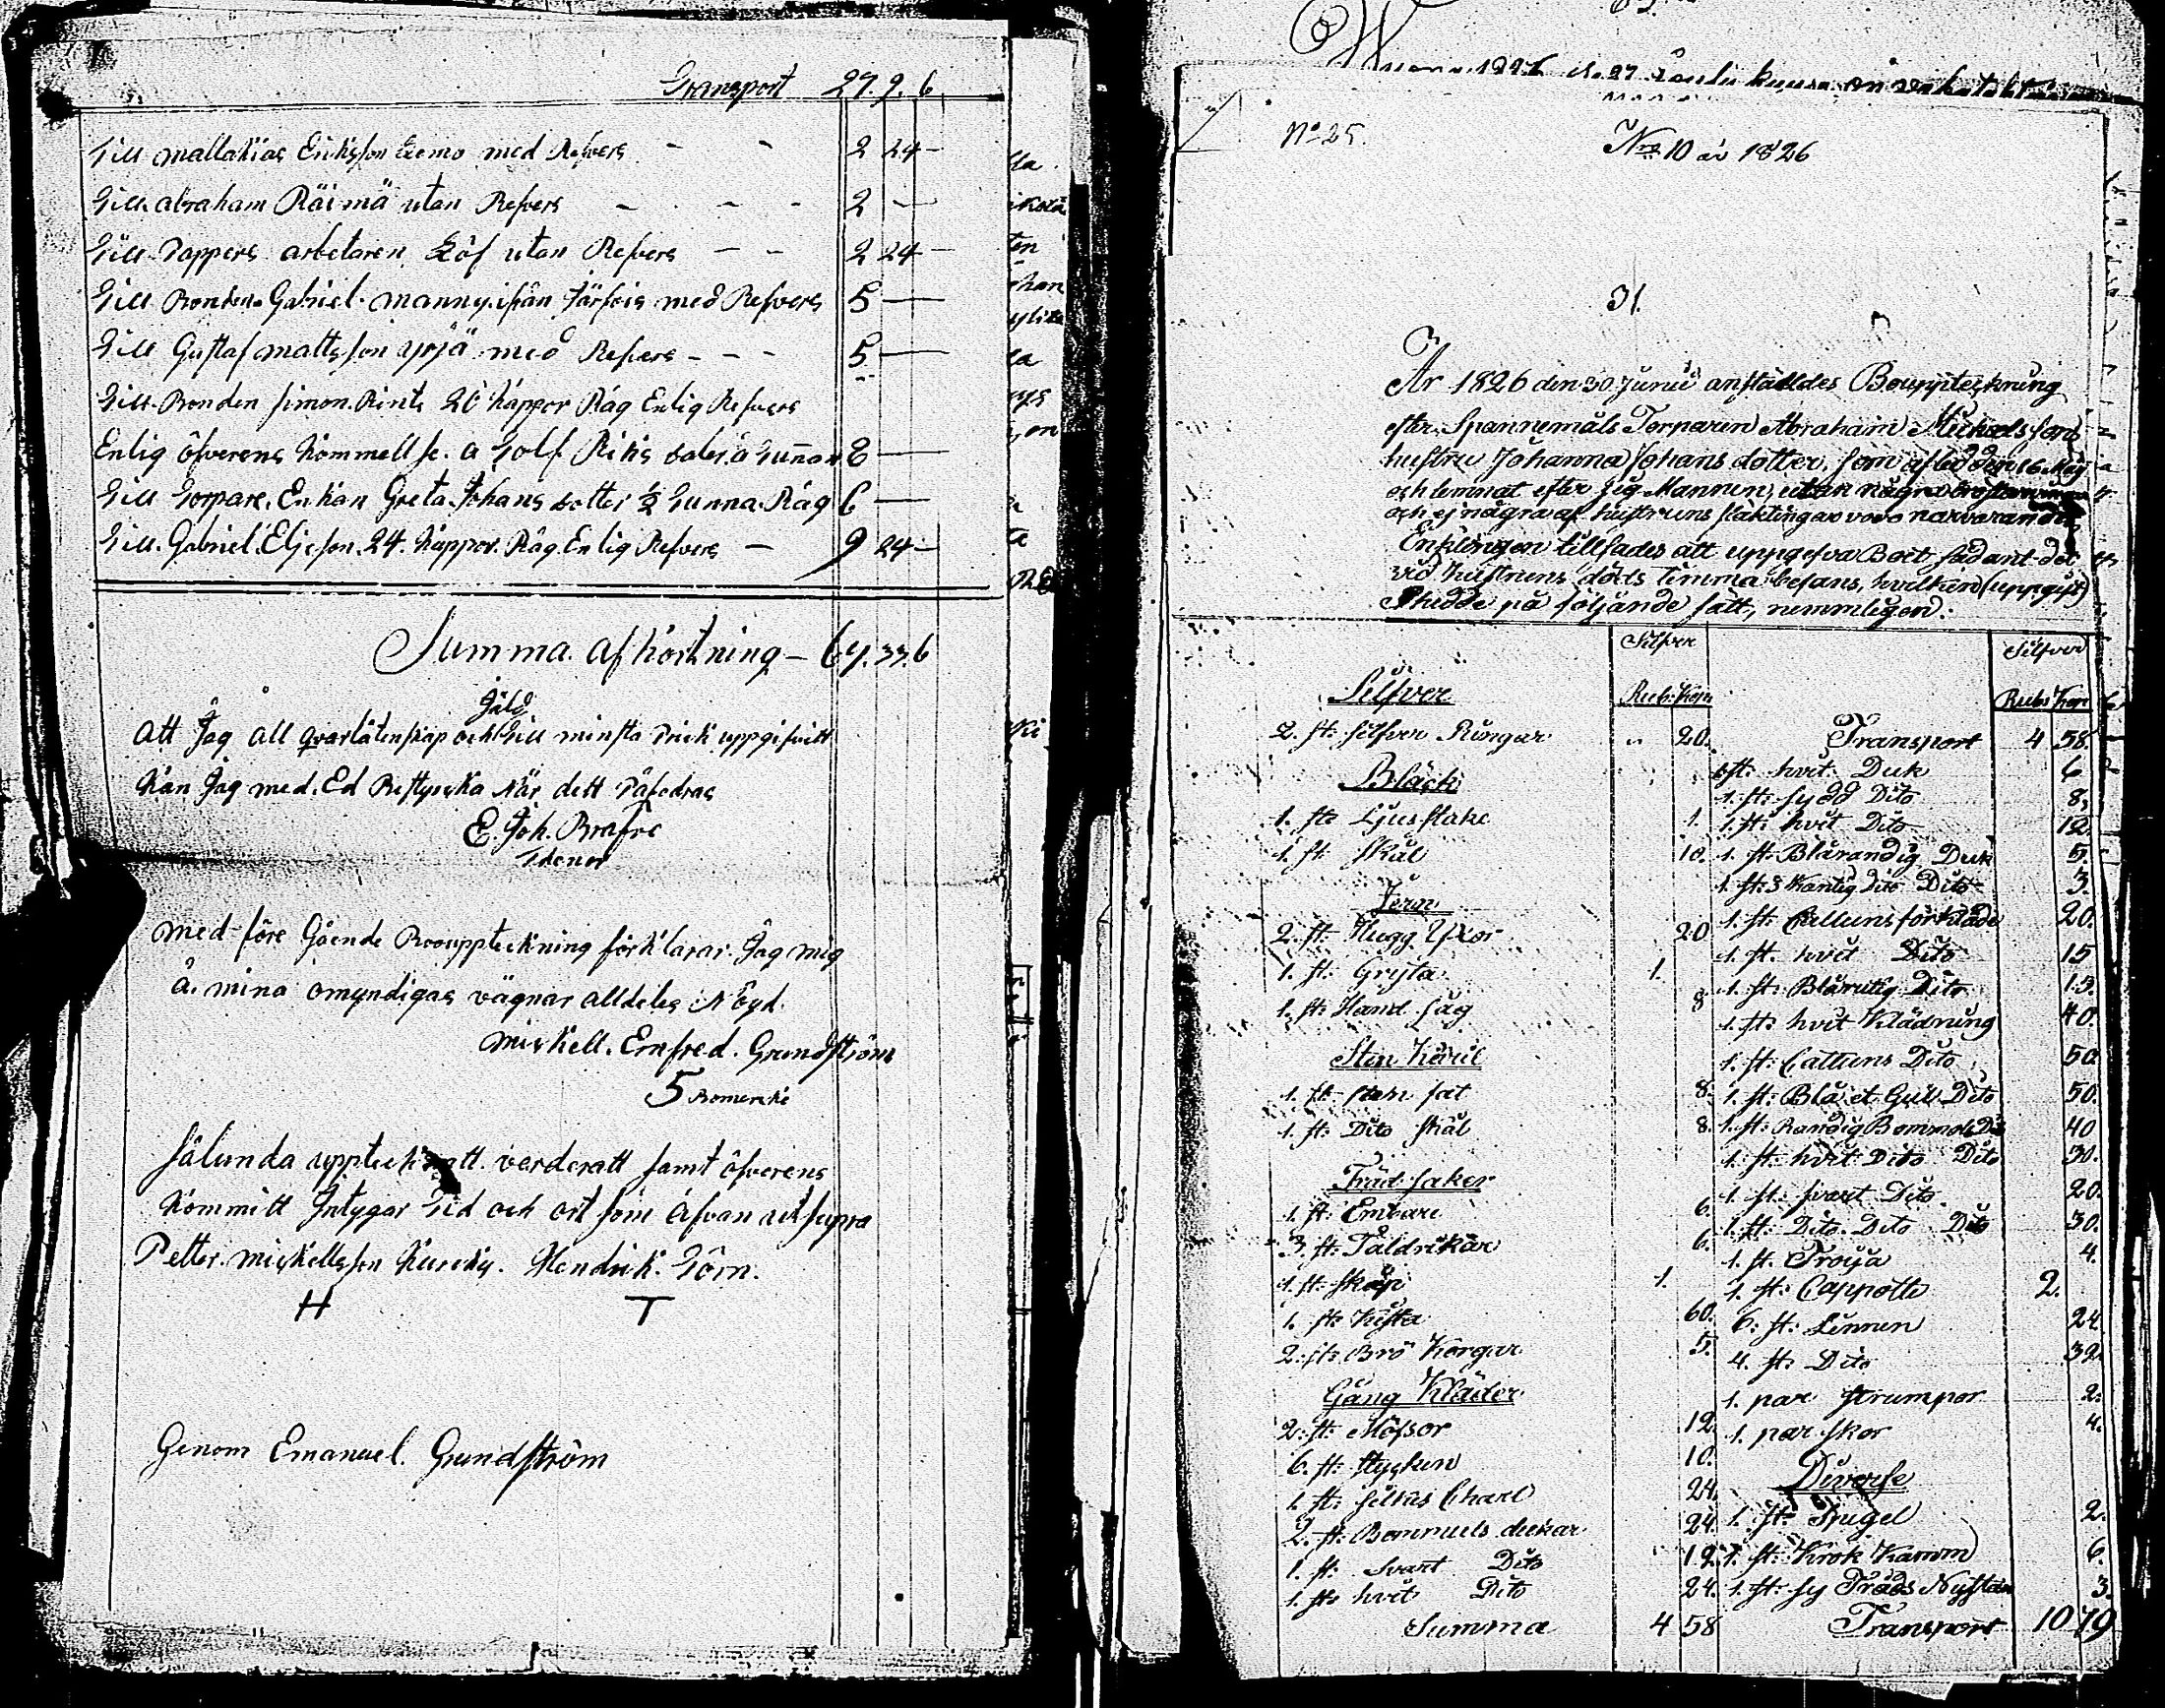 Transport 27. 9. 6
Till mallakias Eriksson Lemo med Refvers - - 2 24 -
Till. abraham Räimä utan Refvers - - - - 2 -
Till. Pappers arbetaren Löf utan Refvers - - 2 24 -
Till Bonden. Gabriel. manny. ifrån Järfois med Refvers 5 -
Till Gustaf mattsson yöjä med Refvers - - - 5 -
Till. Bonden simon. Rints 20 kappor Råg Enlig Refvers
Enlig öfverens kommellse. a Golf Riks daler. a Tunnan 8 -
Till Torpare. Enkan Greta. Johans dotter ½ Tunna. Råg 6 -
Till. Gabriel. Eljeson. 24. kappor. Råg. Enlig Refvers - 9 24 -
Summa. af kortning - 64. 33. 6
Gäld
Att Jag all qvarlåtenskap och till minsta Prick uppgifvitt
kan Jag med. Ed Bestyrcka När dett Påfodras
E. Joh.
med före Gående Boouppteckning förklarar. Jag mig
å. mina omyndigas vägnar alldeles Nöyd.
mickell. Enfred. Grundström
5 Bomercke
sålunda upptecknatt. verderatt samt öfverens
kommitt Intygar Tid och ort som åfvan ut supra
Petter. mickellsson Kurcky. Hendrik. Törn.
H T
Genom Emanuel. Grundström
No 25.
No 10 år 1826
31.
År 1826 den 30 Junii anställdes Bouppteckning
efter Spannemåls Torparen Abraham Mickelssons
hustru Johanna Johans dotter, som afled den 16 Maj
och lemnat efter sig Mannen, utan några bröstarfvingar
och ej några af hustruns släktingar voro närvarande
Enklingen tillsades att uppgifva Boet sådant det
vid hustruns döds timma befans, hvilken (uppgift)
Skedde på följande sätt, nemmligen:
Silfver Silfver
Silfver Rub: Kop: Rub: Kop:
2. st: silfver Ringar " 20. Transport 4 58.
Bläck 1 st: hvit Duk 6
1. st: sydd Dito 8.
1. st: Ljusstake 1. 1. st: hvit Dito 12.
1. st: skål 10. 1. st: Blårandig Duk 5.
Jern 1. st: 3 kantig dito Dito 3.
2. st: Hugg Yxor 20 1. st: Cattuns förkläde 20.
1. st: Gryta 1. 1. st: hvit Dito 15
1. st: Hand såg 8 1. st: Blårutig Dito 15.
1. st: hvit Klädning 40.
Sten Käril 1. st: Cattuns Dito 50
1. st: sten fat 8. 1. st: Blå et Gul Dito 50.
1. st: Dito skål 8. 1. st: Randig Bommuls Dito 40
Träd saker 1. st: hvit Dito Dito 30.
1. st: Embare 6. 1. st: svart Dito 20.
3. st: Taldrikar 6. 1. st: Dito. Dito Dito 30.
1. st: skåp 1. 1. st. Tröija 4.
1. st: kista 60. 1. st: Cappotte 2.
2. st: Brö Korgar 5. 6. st: Linnen 24.
4. st: Dito 32.
Gång Kläder 1. par strumpor 2.
2. st: Mössor 12. 1. par skor 4.
6. st: stycken 10. Diverse
1. st: silkes Charl 24. 1. st: Spegel 2.
2. st: Bommuls dukar 24. 1. st: Krok Kamm 6.
1. st: svart Dito 12. 1. st: sy Tråds Nystan 3.
1. st: hvit Dito 24.
Summa 4 58 Transport 10 79